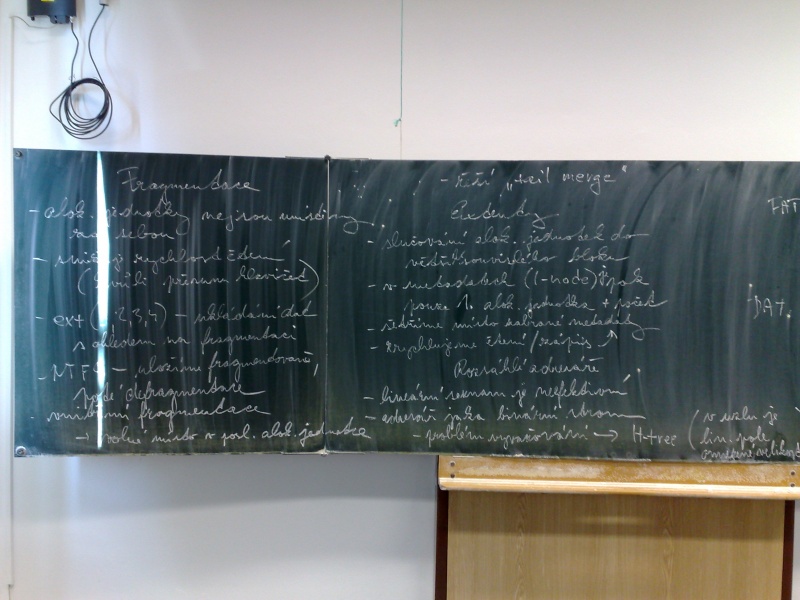 Fragmentace
- alok. jednotky nejsou umístěny
za sebou
- snižuje rychlost čtení
(kvůli přesunu hlaviček)
- ext (2,3,4) - ukládání dat
s ohledem na fragmentaci
- NTFS - uložení fragmentované,
defragmentace
- vnitřní fragmentace
→ volné místo v posl. alok. jednotce
- řeší „tail merge“
Extenty
- slučování alok. jednotek do
většího souvislého bloku
- v metadatech (i-node) je pak
pouze 1. alok. jednotka + počet
- místo zabrané metadaty
- zrychlujeme čtení/zápis
Rozsáhlé adresáře
- lineární seznam je neefektivní
- adresář jako binární strom
- problém vyvažování → H-tree (v uzlu je
lin. pole
FAT
DAT,